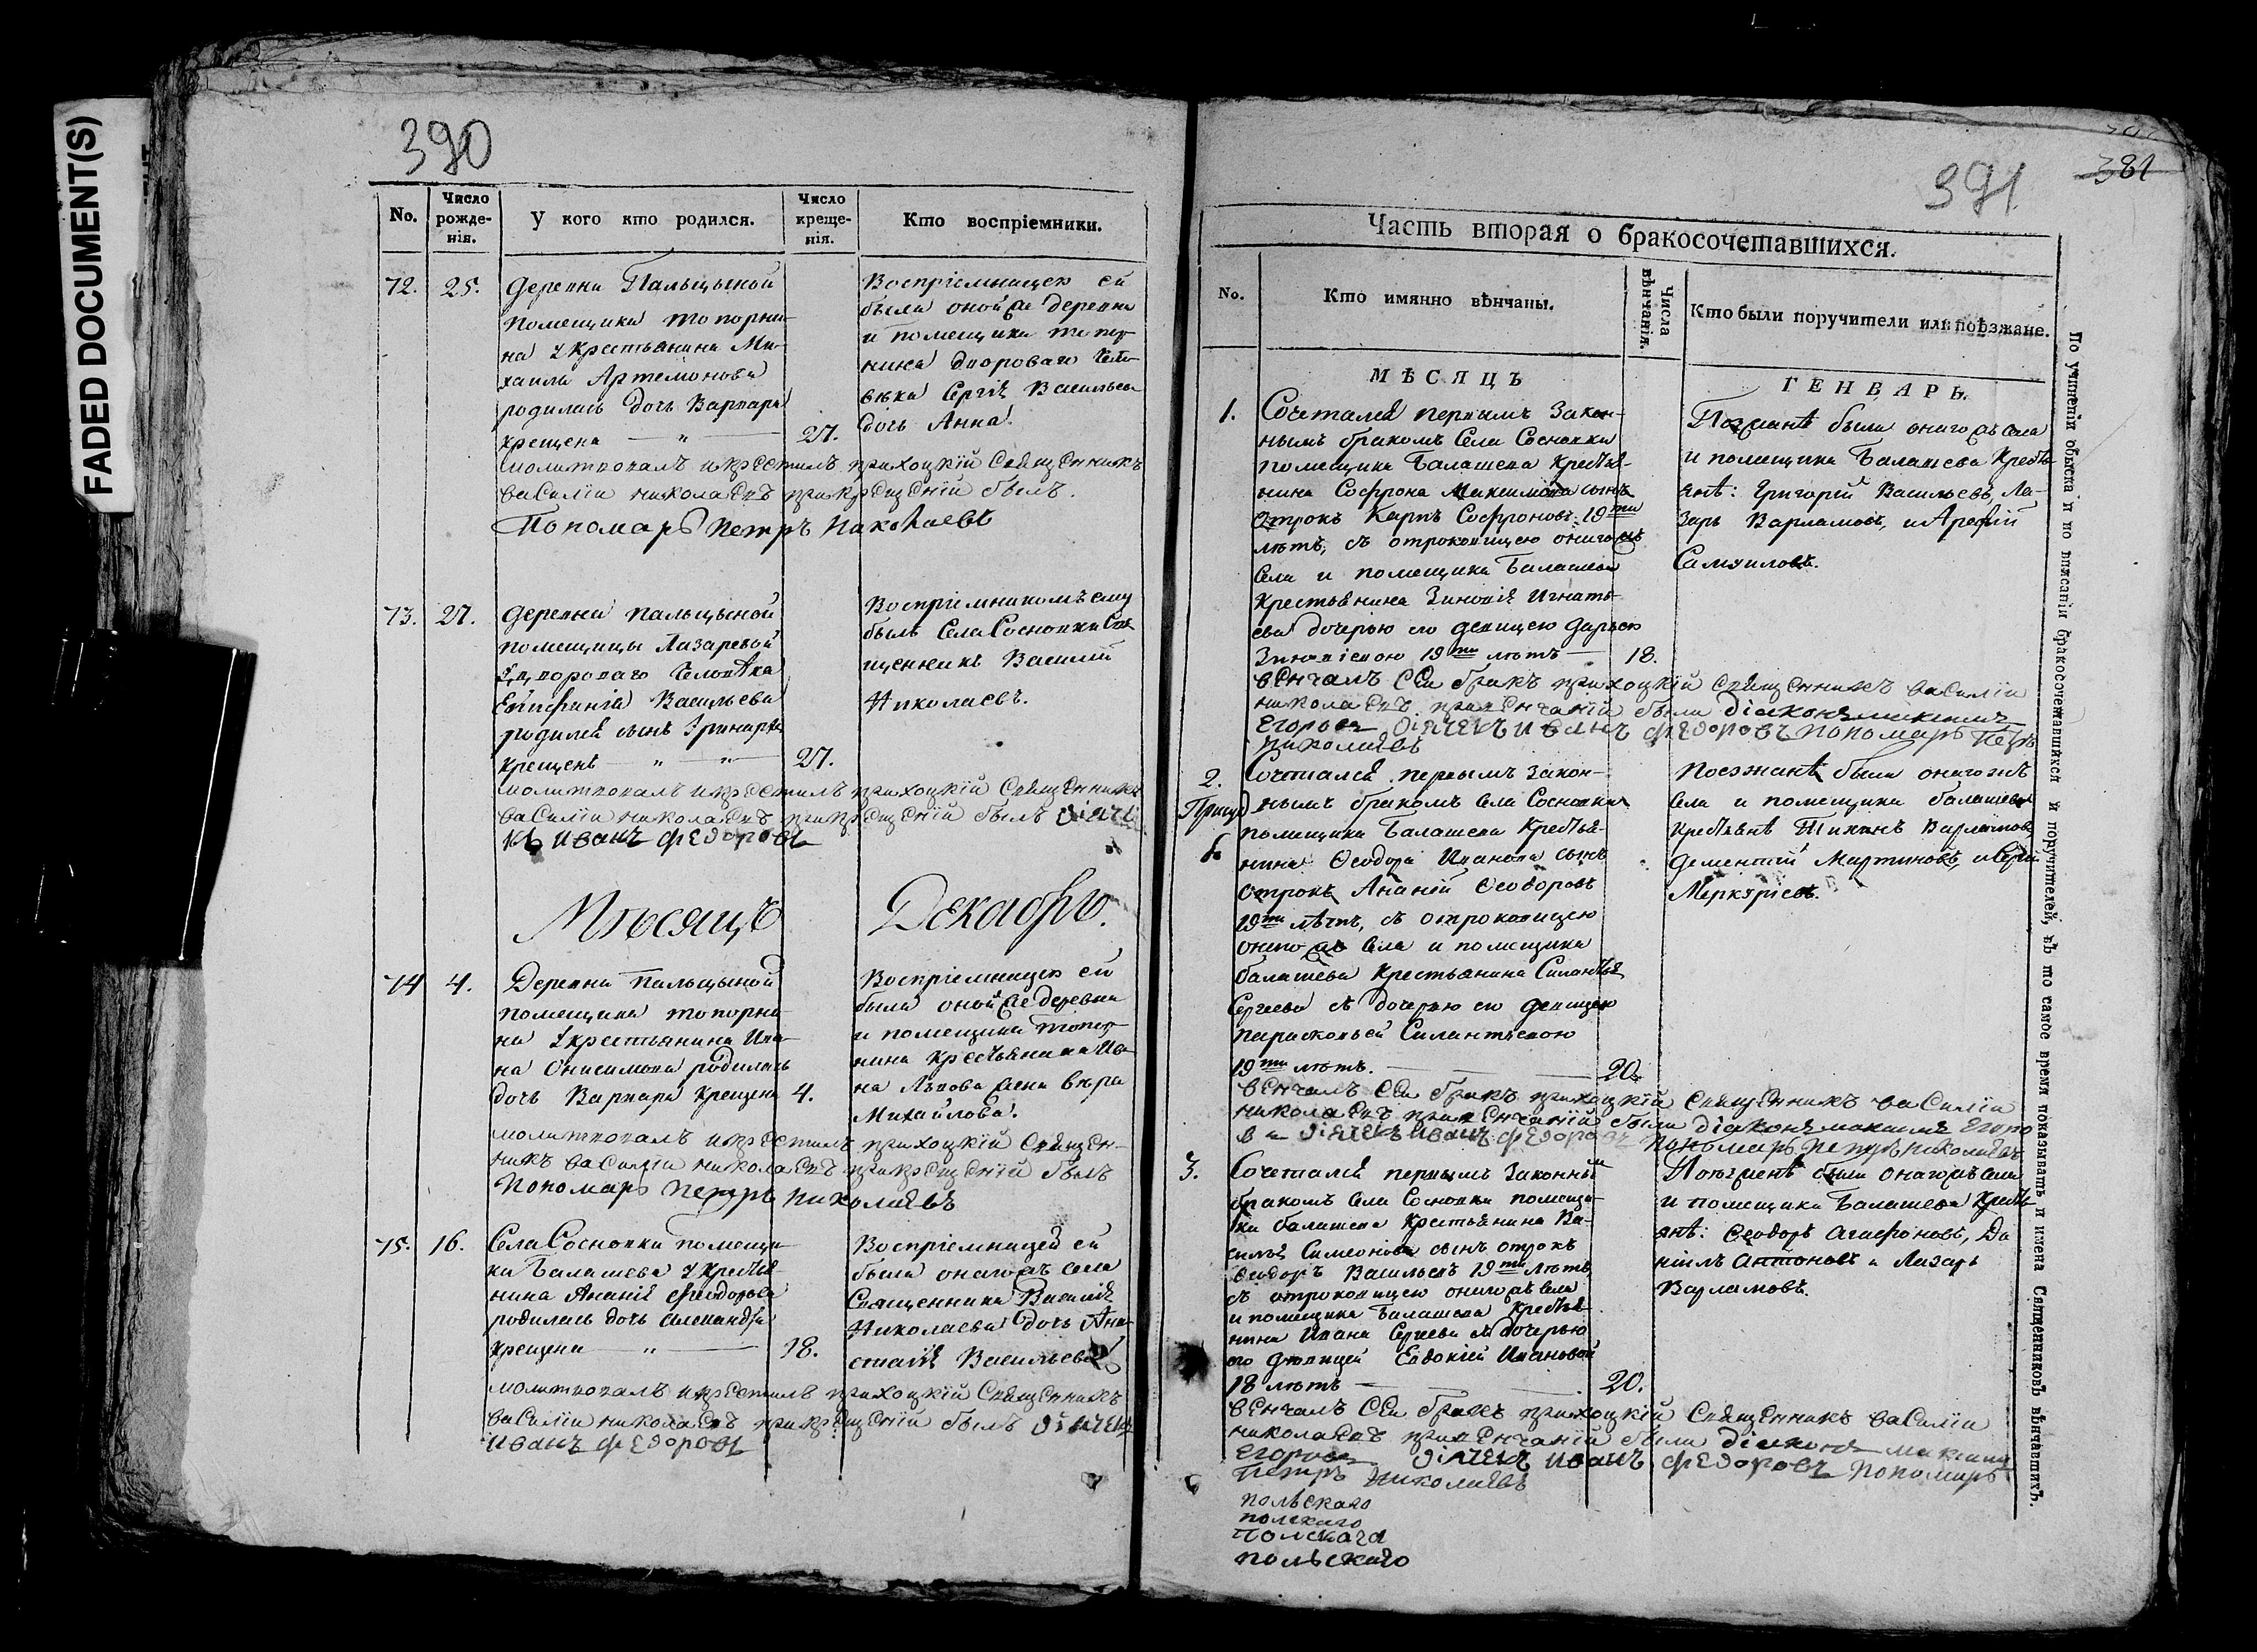 FADED DOCUMENT(S)
390
No.
Число рожде-нія.
У кого кто родился.
Число креще-нія.
Кто воспріемники.
72.
25.
деревни Пальцыной
помещика топорни-
на у крестьянина Ми-
хаила Артемонова
родилась дочь Варвара
крещена — " —
27.
Воспріемницею ей
была оной же деревни
и помещика топор-
нина двороваго чело-
века Сергія Васильева
дочь Анна.
молитвовалъ и крестилъ прихоцкій священникъ
василіи николаевъ прикрещеніи былъ
Пономарь Петръ Николаевъ
73.
27.
деревни пальцыной
помещицы Лазаревой
у двороваго человѣка
Епифанія Васильева
родился сынъ
крещенъ — " — " —
27.
Воспріемникомъ ему
былъ Села Сосновки Свя-
щенникъ Василій
Николаевъ.
молитвовалъ и крестилъ прихоцкій священникъ
василіи николаевъ прикрещеніи былъ діаче
къ иванъ федоровъ
Мѣсяцъ Декабрь.
74
4.
Деревни Пальцыной
помещика топорни-
на у крестьянина Ива-
на Онисимова родилась
дочь Варвара крещена
4.
Воспріемницею ей
была оной же деревни
и помещика топор-
нина крестьянина Ива-
на Львова жена вера
Михайлова.
молитвовалъ и крестилъ прихоцкій священ-
никъ василіи николаевъ прикрещеніи былъ
Пономарь петръ николаевъ
75.
16.
Села Сосновки помещи-
ка Балашева у крестья-
нина Ананія Феодорова
родилась дочь Александра
крещена — " —
18.
Воспріемницей ей
была онагожъ села
Священника Василія
Николаева дочь Ана-
стасія Васильева
молитвовалъ и крестилъ прихоцкій священникъ
василіи николаевъ прикрещеніи былъ діячекъ
иванъ федоровъ
391.
381
Часть вторая о бракосочетавшихся.
No.
Кто имянно вѣнчаны.
Числа вѣнчанія.
Кто были поручители или поѣзжане.
МѢСЯЦЪ
ГЕНВАРЬ.
1.
Сочетался первымъ закон-
нымъ бракомъ Села Сосновки
помещика Балашева крестья-
нина Софрона Максимова сынъ
отрокъ Карпъ Софроновъ 19ти
лѣтъ, съ отроковицею онагожъ
Села и помещика Балашева
крестьянина Зиновія Игнать-
ева дочерью его девицею Дарьею
Зиновіевою 19ти лѣтъ —
18.
Поезжанѣ были онагожъ села
и помещика Балашева Кресть-
янѣ: Григорій Васильевъ, Ла-
зарь Варламовъ, и Арефій
Самоиловъ.
венчалъ сеи бракъ прихоцкій священникъ василіи
николаевъ привенчаніи были діаконъ максимъ
Егоровъ діячекъ иванъ федоровъ пономарь петръ
николаевъ
2.
Сочетался первымъ закон-
нымъ бракомъ села Сосновки
помещика Балашева Крестья-
нина Феодора Иванова сынъ
отрокъ Ананій Феодоровъ
19ти лѣтъ, съ отроковицею
онаго же села и помещика
балашева крестьянина Силантья
Сергеева съ дочерью его девицею
парасковьей Силантьевою
19ти лѣтъ. —
20.
Поезжанѣ были онагожъ
села и помещика балашева
крестьянѣ Варламовъ
дементій Мартиновъ, и Сергій
Меркуріевъ.
венчалъ сеи бракъ прихоцкій священникъ василіи
николаевъ привенчаніи были діаконъ максимъ Егоро
въ діячекъ иванъ федоровъ пономарь петръ николаевъ
3.
Сочетался первымъ законнымъ
бракомъ села Сосновки помещи-
ка балашева крестьянина Ва-
силья Симеонова сынъ отрокъ
Феодоръ Васильевъ 19ти лѣтъ,
съ отроковицею онагожъ села
и помещика Балашева крестья-
нина Ивана Сергеева съ дочерью
его девицей Евдокіей Ивановой
18 лѣтъ —
20.
Поезжанѣ были онагожъ села
и помещика Балашева кресть-
янѣ: Феодоръ Агафоновъ, Да-
ніилъ Антоновъ и Лазарь
Варламовъ.
венчалъ сеи бракъ прихоцкій священникъ василіи
николаевъ привенчаніи были діаконъ максимъ
Егоровъ діячекъ иванъ федоровъ пономарь
петръ николаевъ
польскаго
полскаго
Полскага
польскаго
По учиненіи обыска и по вписаніи бракосочетавшихся и поручителей, въ то самое время показывать и имена Священниковъ вѣнчавшихъ.